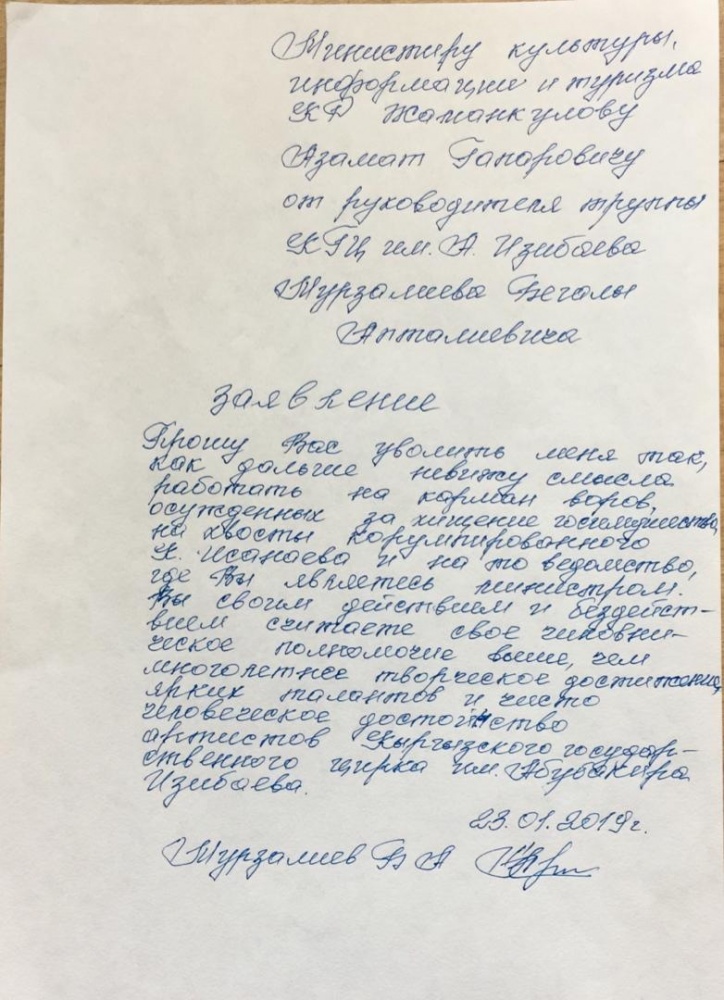 Министру культуры,
информации и туризма
КР Жаманкулову
Азамат Гапаровичу
от руководителя труппы
КГЦ им. А. Изибаева
Мурзалиева Бегалы
Апталиевича
Заявление
Прошу Вас уволить меня так,
как дальше невижу смысла
работать на карман воров,
осужденных за хищение госимущества,
на хвосты корумпированного
К. Исанаева и на то ведомство,
где Вы являетесь министром.
Вы своим действием и бездейст-
вием считаете свое чиновни-
ческое полномочие выше, чем
многолетнее творческое достижение,
ярких талантов и чисто
человеческое достойнство
артистов Кыргызского государ-
ственного цирка им. Абубакира
Изибаева.
23.01.2019г.
Мурзалиев Б А